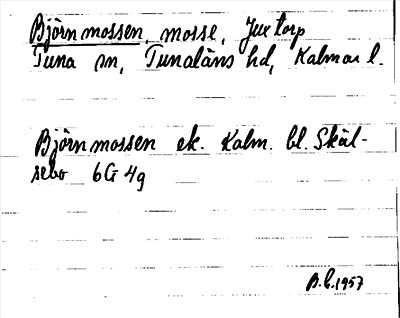 Björnmossen, mosse, Juetorp
Tuna sn, Tunaläns hd, Kalmar l.
Björnmossen ek. Kalm. bl. Skäl-
sebo 6G 4g
B.L. 1957